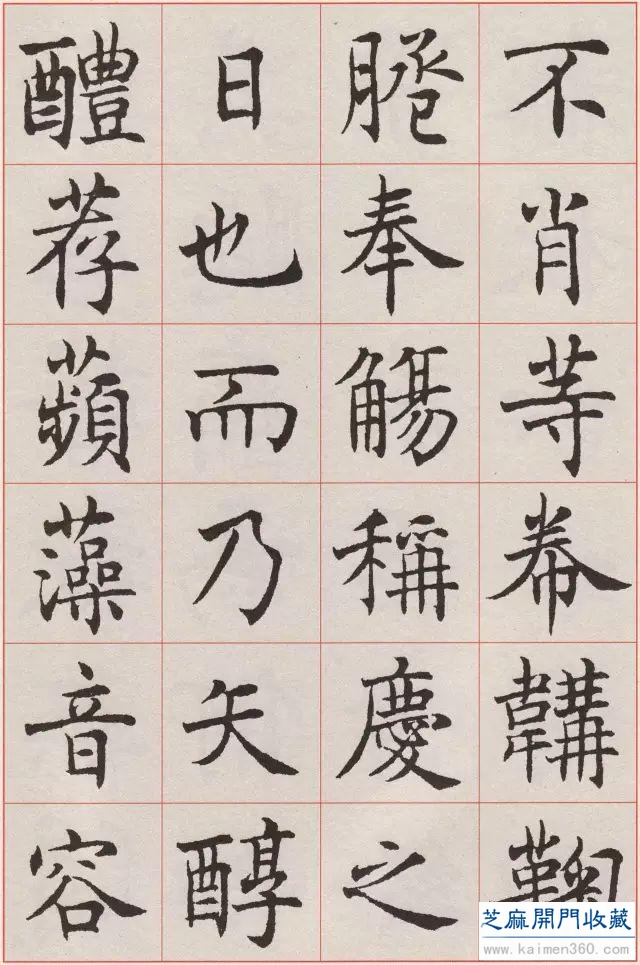 不肖等帣韝鞠
奉觴稱慶之
日也而乃矢醇
醴荐蘋藻音容
芝麻開門收藏
www.kaimen360.com